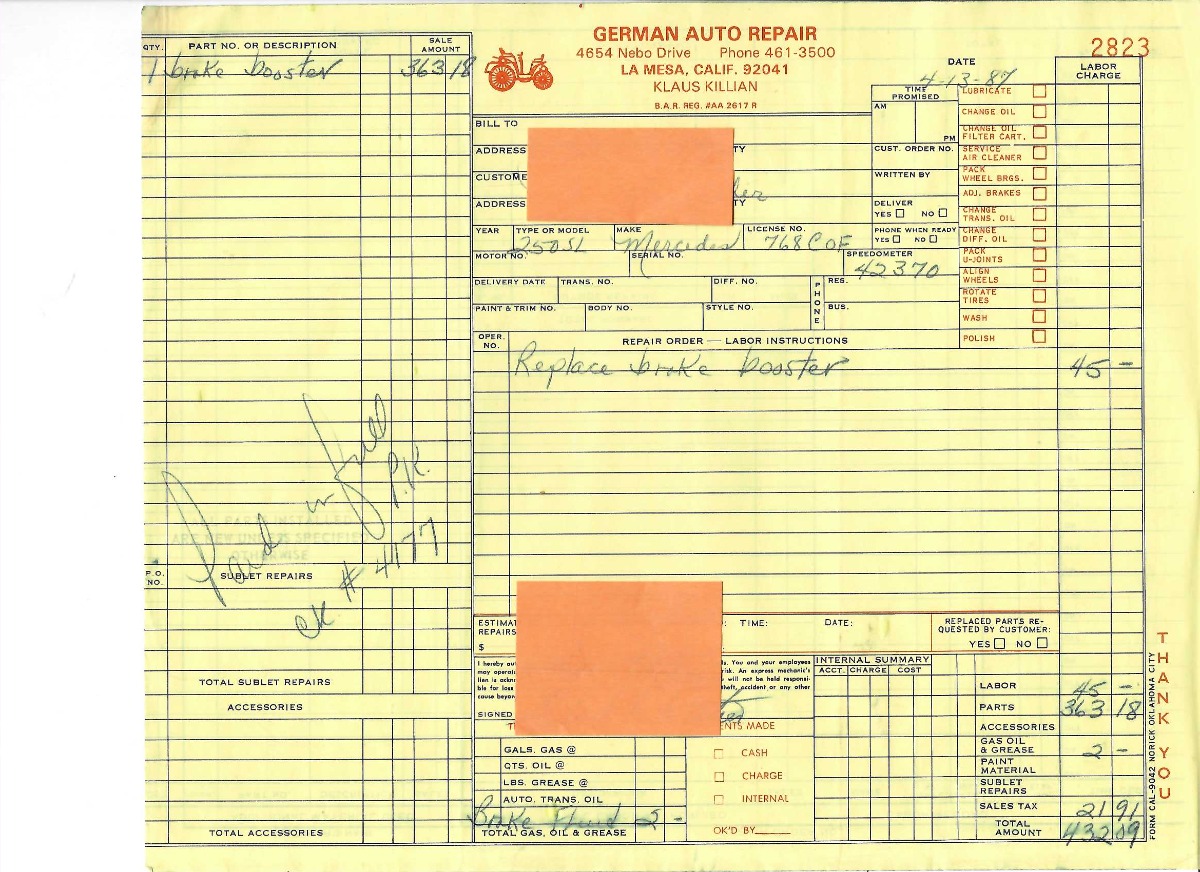 GERMAN AUTO REPAIR
4654 Nebo Drive Phone 461-3500
LA MESA, CALIF. 92041
KLAUS KILLIAN
B.A.R. REG. #AA 2617 R
2823
DATE
4-13-87
QTY. PART NO. OR DESCRIPTION SALE AMOUNT
1 brake booster 363 18
TIME PROMISED
AM
PM
LABOR CHARGE
LUBRICATE
CHANGE OIL
CHANGE OIL FILTER CART.
SERVICE AIR CLEANER
PACK WHEEL BRGS.
ADJ. BRAKES
CHANGE TRANS. OIL
CHANGE DIFF. OIL
PACK U-JOINTS
ALIGN WHEELS
ROTATE TIRES
WASH
POLISH
BILL TO
ADDRESS TY
CUSTOME
ADDRESS TY
CUST. ORDER NO.
WRITTEN BY
DELIVER
YES NO
PHONE WHEN READY
YES NO
YEAR TYPE OR MODEL MAKE LICENSE NO.
250SL Mercedes 768COF
MOTOR NO. SERIAL NO. SPEEDOMETER
42370
DELIVERY DATE TRANS. NO. DIFF. NO. PHONE RES.
PAINT & TRIM NO. BODY NO. STYLE NO. BUS.
OPER. NO. REPAIR ORDER — LABOR INSTRUCTIONS
Replace brake booster 45 -
Paid in full
P.K.
CK # 4177
ARE NEW UNLESS SPECIFIED
OTHERWISE
P.O. NO. SUBLET REPAIRS
TOTAL SUBLET REPAIRS
ACCESSORIES
TOTAL ACCESSORIES
ESTIMAT
REPAIRS
$
TIME: DATE:
REPLACED PARTS RE-
QUESTED BY CUSTOMER:
YES NO
I hereby au ls. You and your employees
may operat risk. An express mechanic's
lien is ackn will not be held responsi-
ble for loss theft, accident or any other
cause beyon
SIGNED
ENTS MADE
GALS. GAS @
QTS. OIL @
LBS. GREASE @
AUTO. TRANS. OIL
Brake Fluid 2 -
TOTAL GAS, OIL & GREASE
CASH
CHARGE
INTERNAL
OK'D BY
INTERNAL SUMMARY
ACCT. CHARGE COST
LABOR 45 -
PARTS 363 18
ACCESSORIES
GAS OIL & GREASE 2 -
PAINT MATERIAL
SUBLET REPAIRS
SALES TAX 21 91
TOTAL AMOUNT 432 09
THANK YOU
FORM CAL-9042 NORICK OKLAHOMA CITY